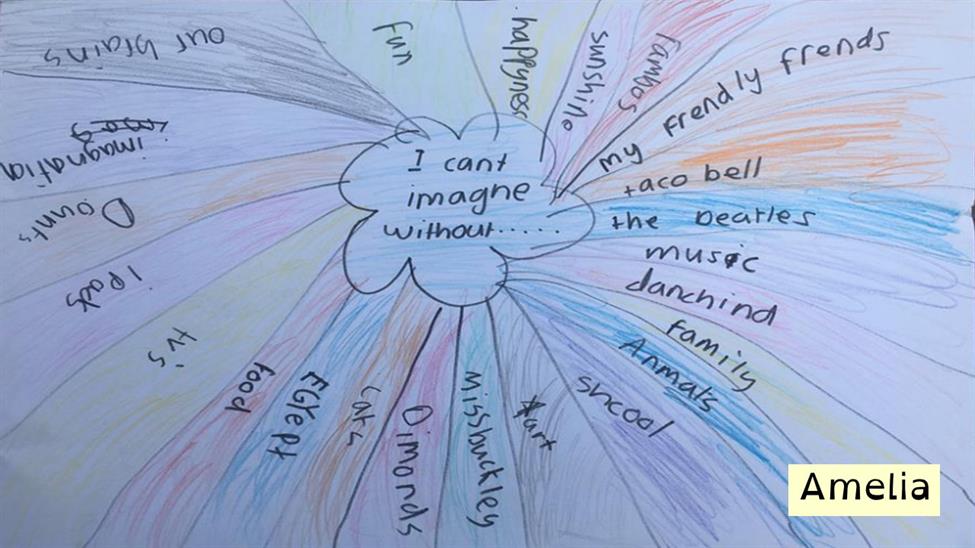 I cant
imagne
without......
fun
happyness
sunshine
fambos
my frendly frends
taco bell
the beatles
music
danchind
family
Anmals
shcool
art
Missbuckley
Dimonds
cats
EGYEPt
food
tv's
ipads
Dounts
imagnation
our brains
Amelia